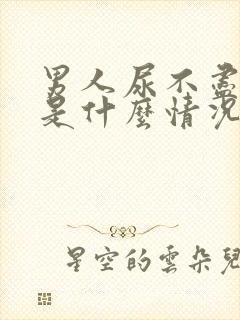 男人尿不盡
是什麼情況
星空的雲朵兒